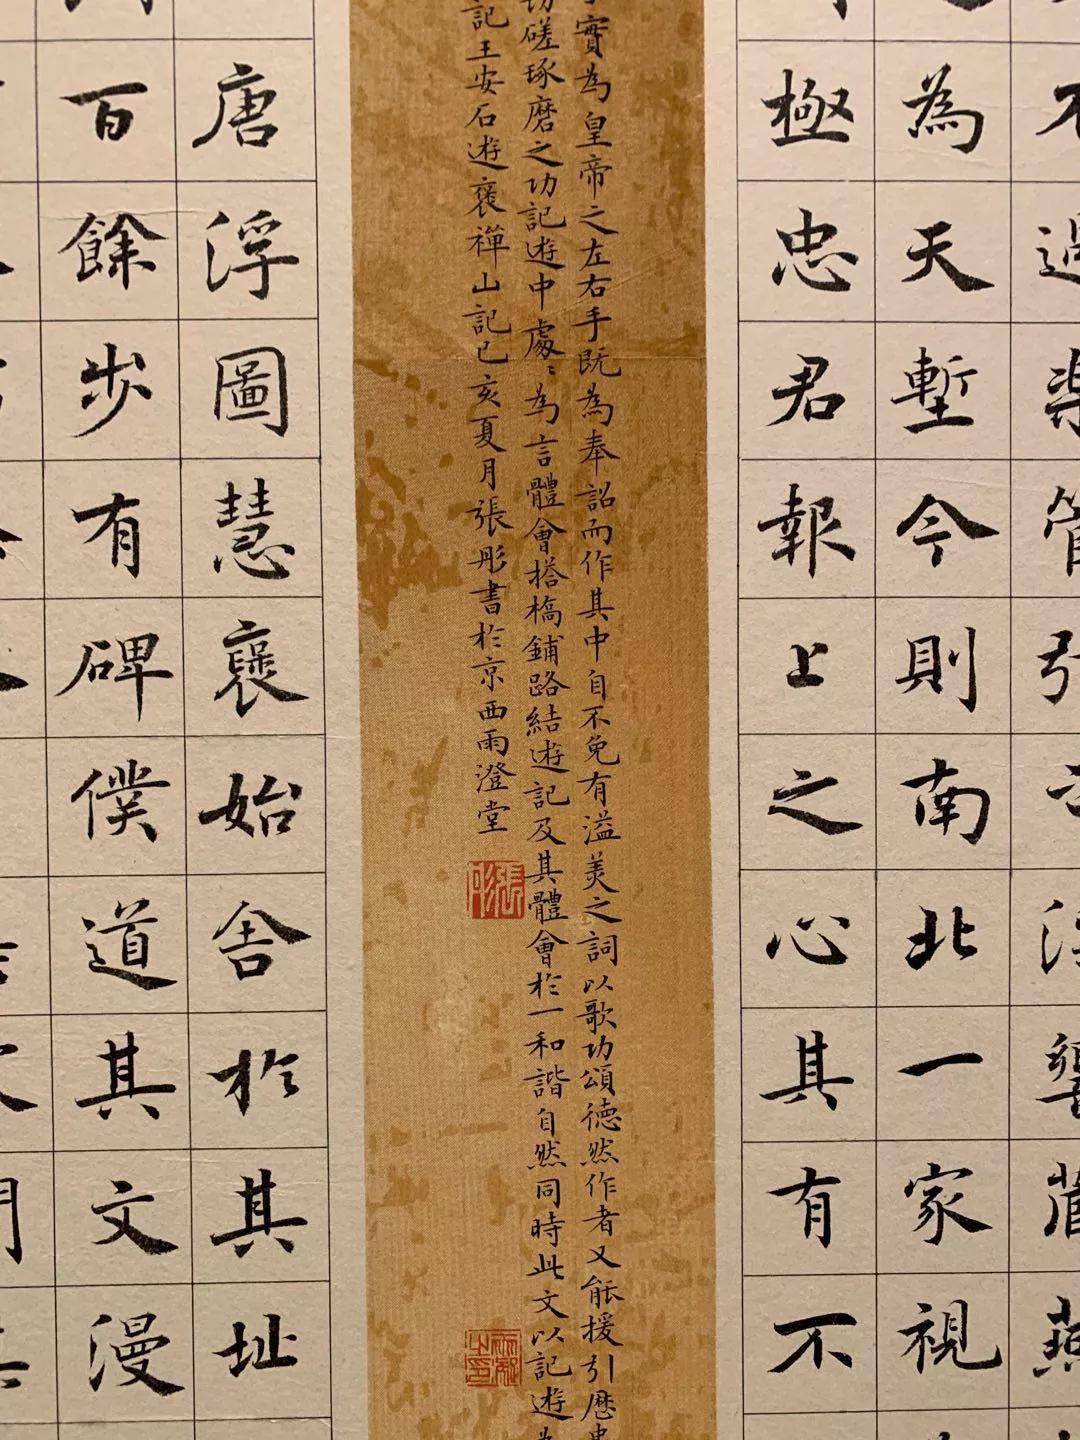 過樂管
為天塹今則南北一家視
極忠君報上之心其有不
實為皇帝之左右手既為奉詔而作其中自不免有溢美之詞以歌功頌德然作者又能援引歷史
切磋琢磨之功記遊中處〻為言體會搭橋鋪路結遊記及其體會於一和諧自然同時此文以記遊為
記王安石遊褒禪山記己亥夏月張彤書於京西雨澄堂
唐浮圖慧褒始舍於其址
百餘步有碑僕道其文漫